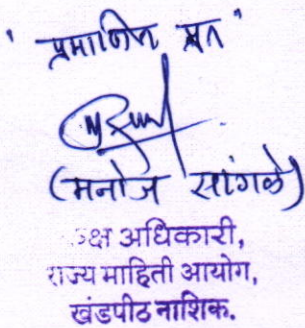 ' प्रमाणित प्रत '
(मनोज सांगळे)
कक्ष अधिकारी,
राज्य माहिती आयोग,
खंडपीठ नाशिक.